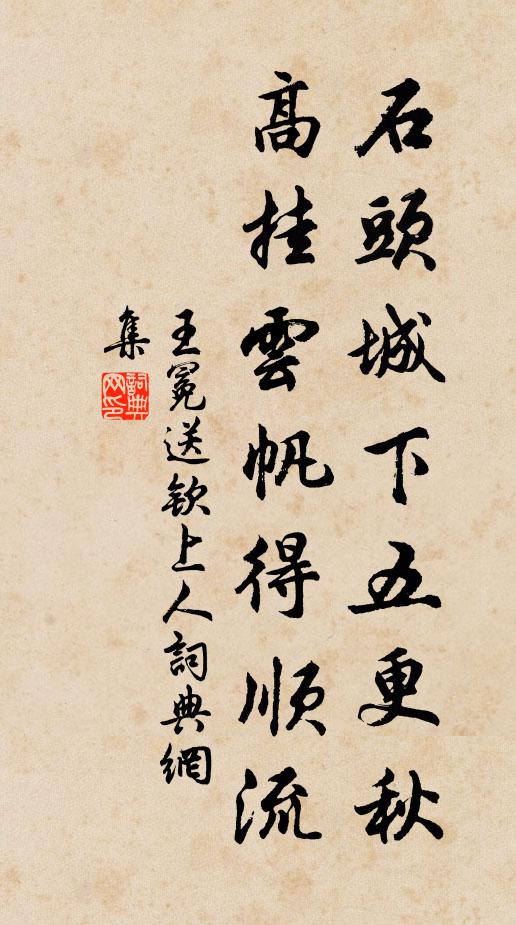 石頭城下五更秋
高挂雲帆得順流
王冕送欽上人詞典網
集
詞典网印